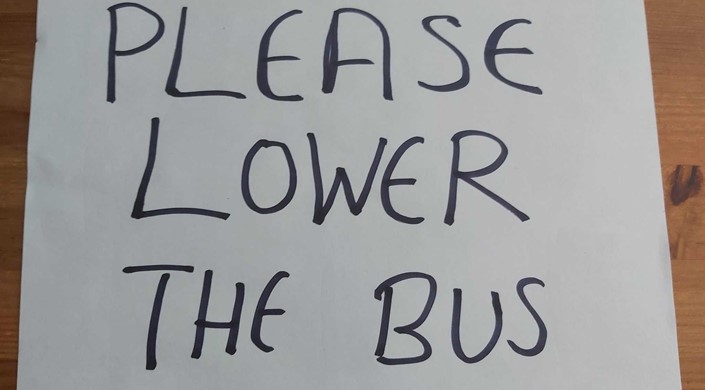 PLEASE
LOWER
THE BUS